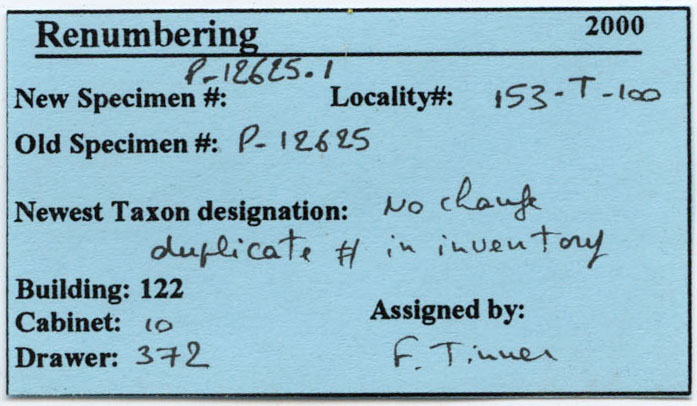 Renumbering 2000
P-12625.1
New Specimen #: Locality#: 153-T-100
Old Specimen #: P-12625
Newest Taxon designation: No change
duplicate # in inventory
Building: 122
Cabinet: 10 Assigned by:
Drawer: 372 F. Tinner